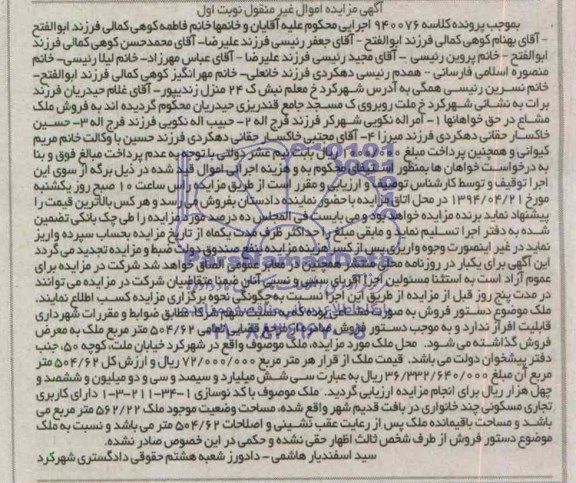 آگهی مزایده اموال غیر منقول نوبت اول
بموجب پرونده کلاسه ۹۴۰۰۷۶ اجرایی محکوم علیه آقایان و خانمها خانم فاطمه کوهی کمالی فرزند ابوالفتح
- آقای بهنام کوهی کمالی فرزند ابوالفتح - آقای جعفر رئیسی فرزند علیرضا- آقای محمدحسن کوهی کمالی فرزند
ابوالفتح - خانم پروین رئیسی - آقای مجید رئیسی فرزند علیرضا - آقای عباس مهرزاد- خانم لیلا رئیسی- خانم
منصوره اسلامی فارسانی - همدم رئیسی دهکردی فرزند خانعلی- خانم مهرانگیز کوهی کمالی فرزند ابوالفتح-
خانم نسرین رئیسی همگی به آدرس شهرکرد خ معلم نبش ک ۲۴ منزل زندیپور- آقای غلام حیدریان فرزند
برات به نشانی شهرکرد خ ملت روبروی ک مسجد جامع قندریزی حیدریان محکوم گردیده اند به فروش ملک
مشاع در حق خواهانها ۱- امراله نکویی شهرکی فرزند فرج اله ۲- حبیب اله نکویی فرزند فرج اله ۳- حسین
خاکسار حقانی دهکردی فرزند میرزا ۴- آقای مجتبی خاکسار حقانی دهکردی فرزند حسین با وکالت خانم مریم
کیوانی و همچنین پرداخت مبلغ ریال بابت نیم عشر دولتی با توجه به عدم پرداخت مبالغ فوق و بنا
به درخواست خواهان ها بمنظور استیفای محکوم به و هزینه اجرائی اموال قید شده در ذیل برگه از سوی این
اجرا توقیف و توسط کارشناس توصیف و ارزیابی و مقرر است از طریق مزایده راس ساعت ۱۰ صبح روز یکشنبه
مورخ ۱۳۹۴/۰۴/۲۱ در محل اتاق مزایده با حضور نماینده دادستان بفروش می رسد و هر کس بالاترین قیمت را
پیشنهاد نماید برنده مزایده خواهد بود و می بایست فی المجلس ده درصد مورد مزایده را طی چک بانکی تضمین
شده به دفتر اجرا تسلیم نماید و مابقی مبلغ را حداکثر ظرف مدت یکماه از تاریخ مزایده بحساب سپرده واریز
نماید در غیر اینصورت وجوه واریزی پس از کسر هزینه مزایده بنفع صندوق دولت ضبط و مزایده تجدید می گردد
این آگهی برای یکبار در روزنامه محلی منتشر همچنین در معابر عمومی الصاق خواهد شد شرکت در مزایده برای
عموم آزاد است به استثنا مسئولین اجرا اقربای سببی و نسبی آنان ضمنا متقاضیان شرکت در مزایده می توانند
در مدت پنج روز قبل از مزایده از طریق این اجرا نسبت به چگونگی نحوه برگزاری مزایده کسب اطلاع نمایند.
ملک موضوع دستور فروش به صورت مشاعی بوده مطابق ضوابط و مقررات شهرداری
قابلیت افراز ندارد و به موجب دستور فروش صادره از مرجع قضایی تمامی ۵۰۴/۶۲ متر مربع ملک به معرض
فروش گذاشته می شود. محل ملک مورد مزایده، ملک موصوف واقع در شهرکرد خیابان ملت، کوچه ۵۰، جنب
دفتر پیشخوان دولت می باشد. قیمت ملک از قرار هر متر مربع ۷۲/۰۰۰/۰۰۰ ریال و ارزش کل ۵۰۴/۶۲ متر
مربع آن مبلغ ۳۶/۳۳۲/۶۴۰/۰۰۰ ریال به عبارت سی شش میلیارد و سیصد و سی و دو میلیون و ششصد و
چهل هزار ریال برای انجام مزایده ارزیابی گردید. ملک موصوف با کد نوسازی ۱-۳۴-۲۱۱-۳-۱ دارای کاربری
تجاری مسکونی چند خانواری در بافت قدیم شهر واقع شده، مساحت وضعیت موجود ملک ۵۶۲/۲۲ متر مربع می
باشد و مساحت باقیمانده ملک پس از رعایت عقب نشینی و اصلاحات ۵۰۴/۶۲ متر می باشد و نسبت به ملک
موضوع دستور فروش از طرف شخص ثالث اظهار حقی نشده و حکمی در این خصوص صادر نشده.
سید اسفندیار هاشمی - دادورز شعبه هشتم حقوقی دادگستری شهرکرد